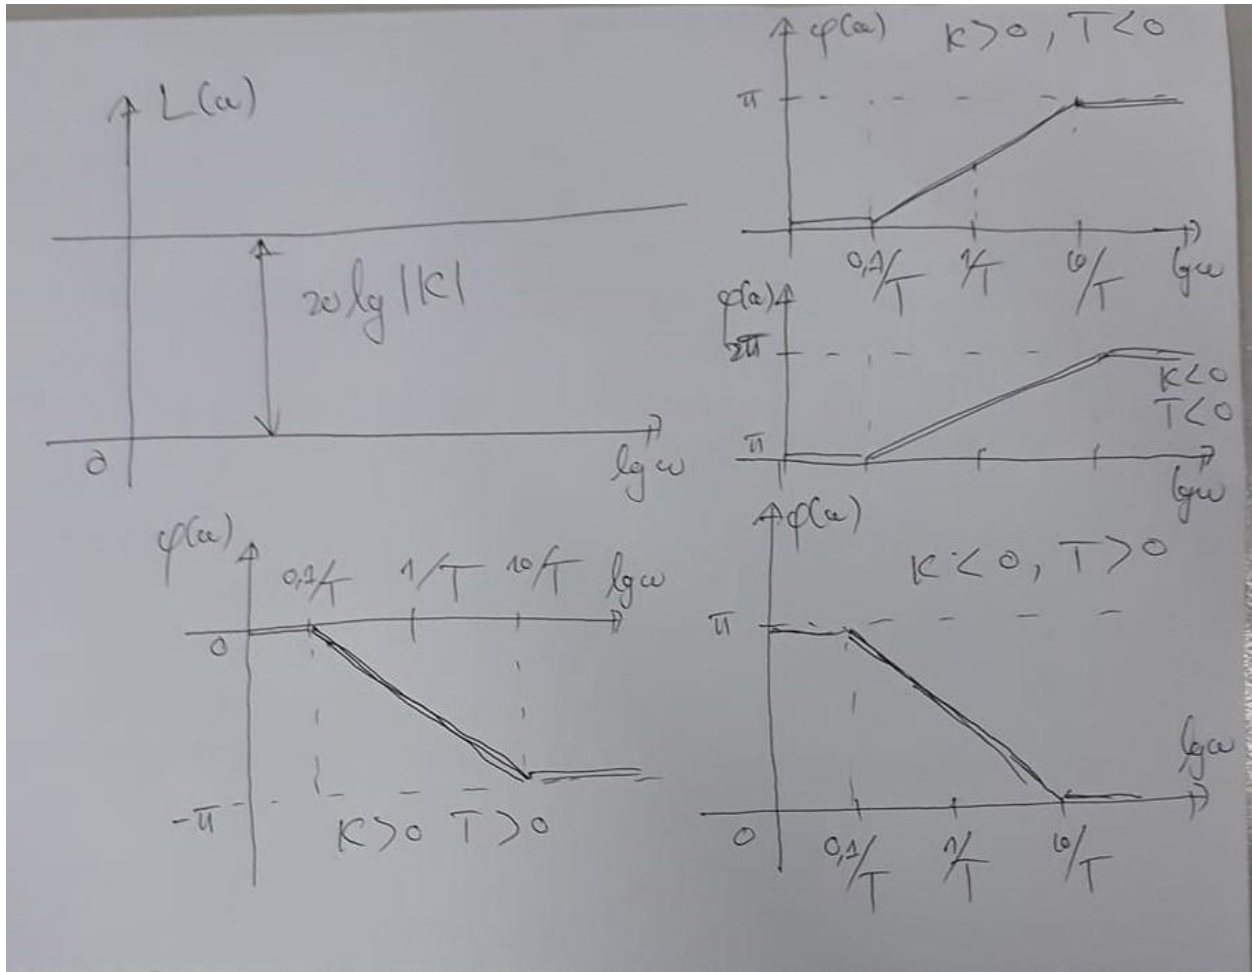 L(ω)
20 lg |K|
0
lg ω
φ(ω) K>0, T<0
π
0,1/T 1/T 10/T lg ω
φ(ω)
2π
K<0
T<0
π
lg ω
φ(ω)
0,1/T 1/T 10/T lg ω
0
-π
K>0 T>0
φ(ω)
K<0, T>0
π
lg ω
0
0,1/T 1/T 10/T